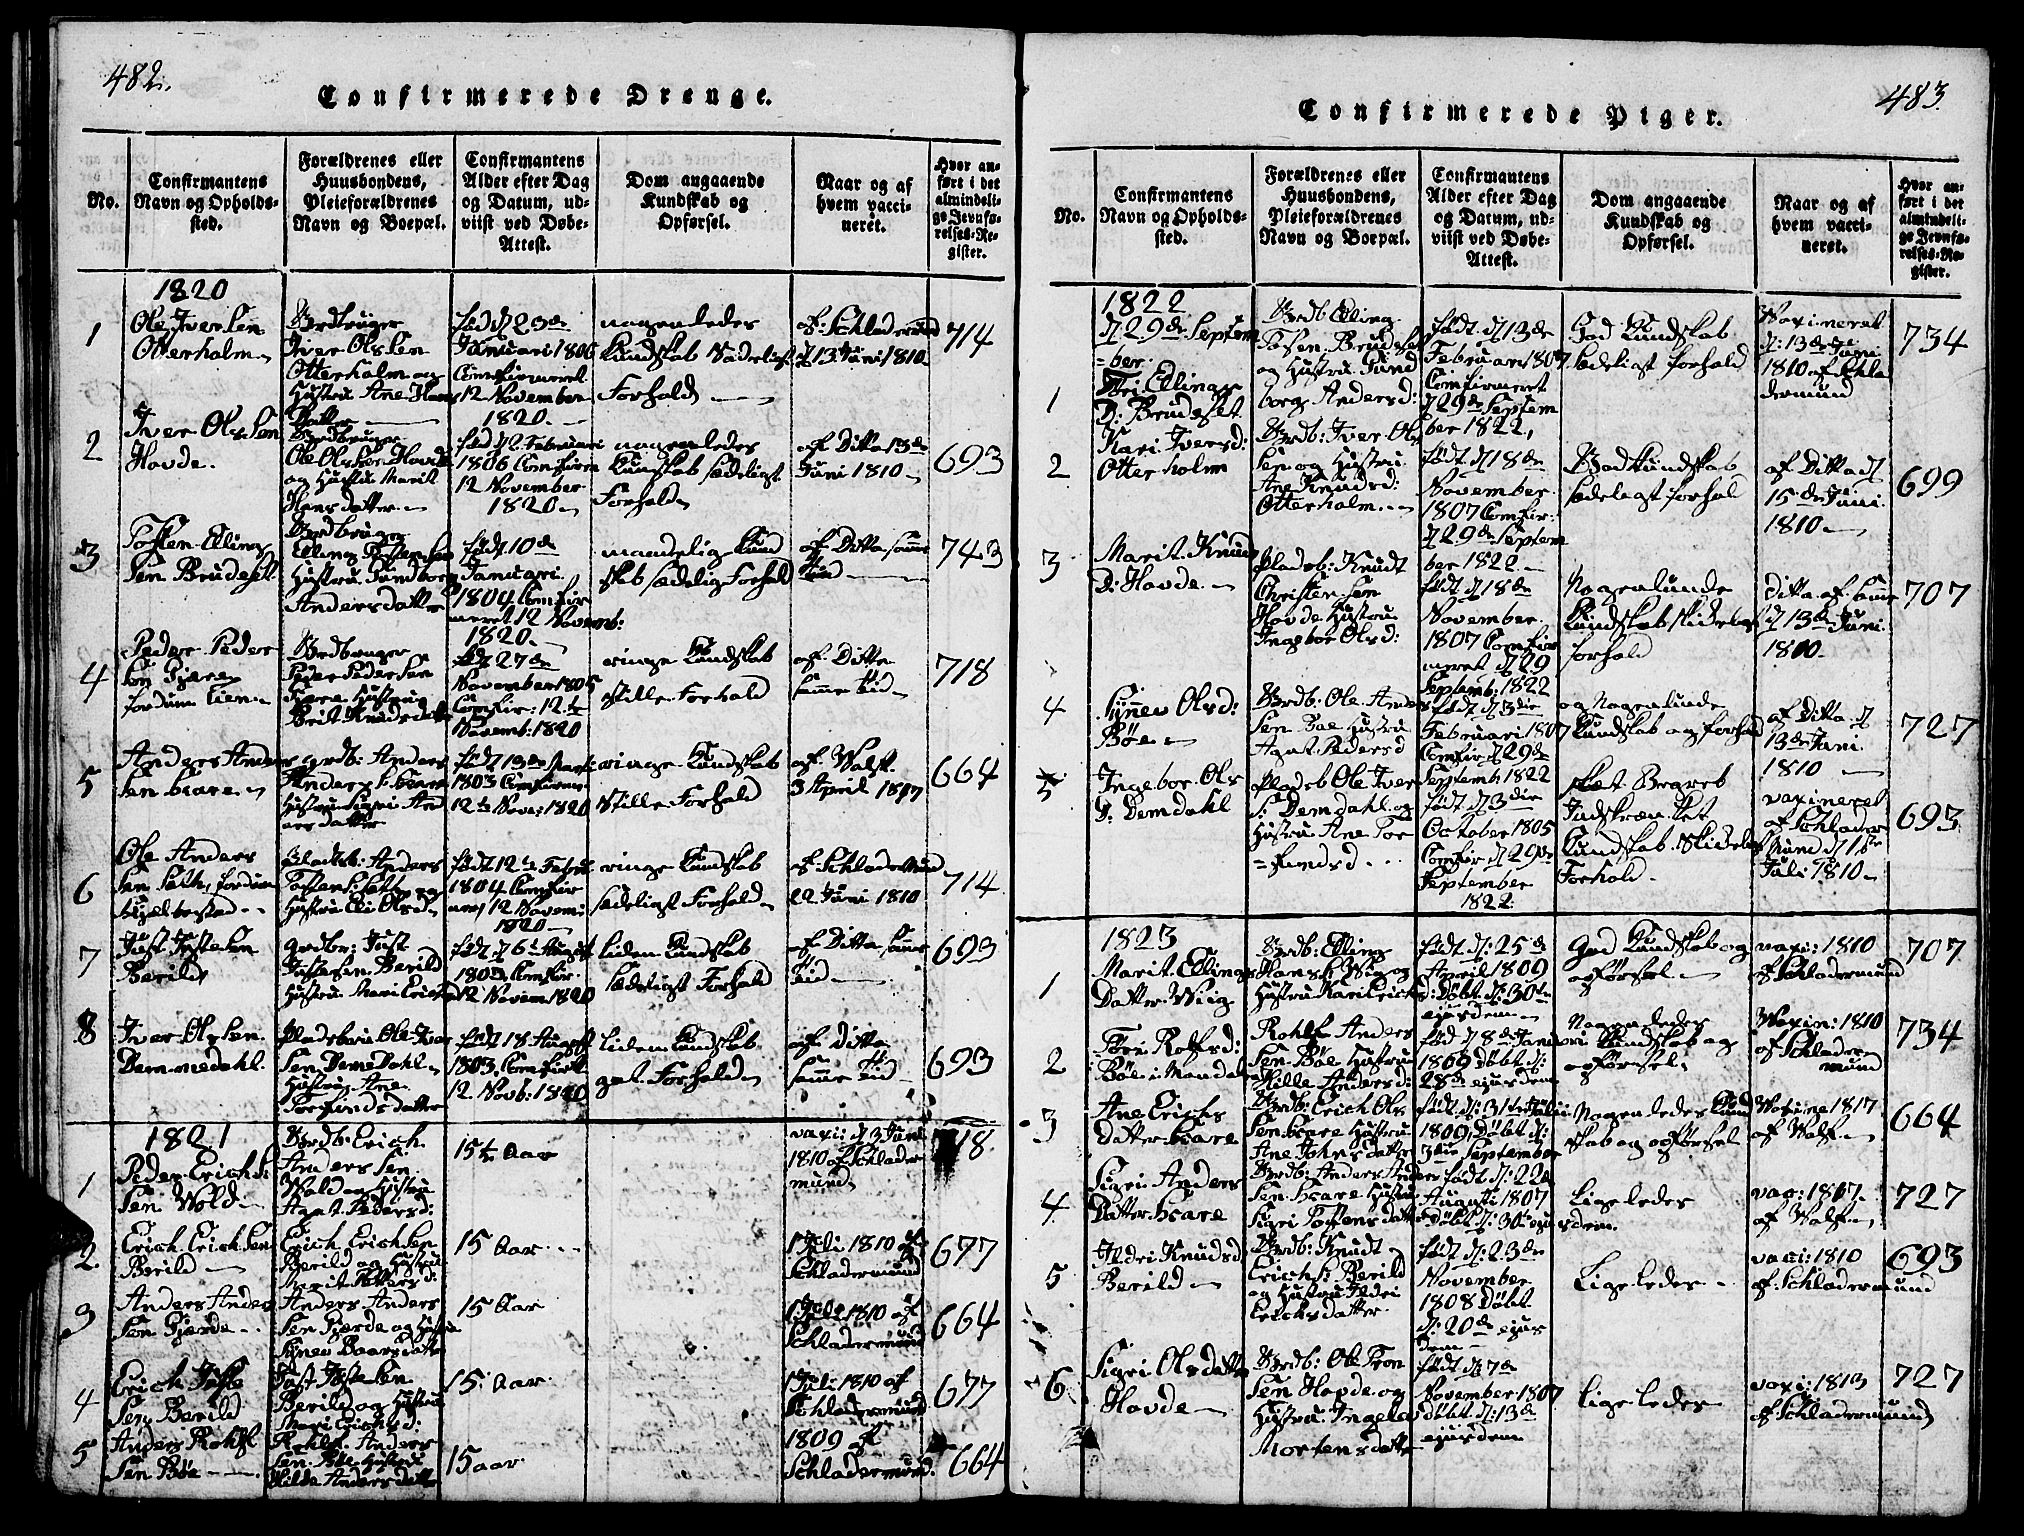 482.
Confirmerede Drenge.
No.
Confirmantens
Navn og Opholds-
sted.
Forældrenes eller
Huusbondens,
Pleieforældrenes
Navn og Boepæl.
Confirmantens
Alder efter Dag
og Datum, ud-
viist ved Døbe-
Attest.
Dom angaaende
Kundskab og
Opførsel.
Naar og af
hvem vacci-
neret.
Hvor an-
ført i det
almindeli-
ge Jevnfø-
relses-Re-
gister.
1820
1
Ole Iversen
Otterholm
Brdbruger
Iver Olssen
Otterholm og
Hustrue Ane Hans
Datter
fød d 23de
Januari 1806
Comfirmeret
12 November
1820.
nogenledes
Kundskab Sædeligt
Forhold
af: Schladermund
d 13 Juni 1810
714
2
Iver Olssen
Hovde.
Brdbruger
Ole Olssen Hovde
og Hustru Marit
Hansdatter
fød d 2 Februari
1806 Comfirm
12 November
1820
nogenledes
Kundskab sædeligt
Forhold
af Ditto 13de
Juni 1810
693
3
Tosten Ellings
Sen Brudeset
Brdbruger
Elling Tostensen
Hustru Gundborg
Andersdatter
født 10de
Januari
1804 Comfir
meret 12 Novemb:
1820.
maadelig Kund
skab sædelig Forhold
af Ditto samme
tid
743
4
Peder Peder
sen Gjere
fordum Eien
Brdbruger
Peder Pedersen
Gjere Hustrue
Brit Knudsdatter
fød 27de
November 1805
Comfir: 12te
Novemb: 1820
ringe Kundskab
stille Forhold
af Ditto
samme tid
718
5
Anders Anders
sen
grdb: Anders
Hustru Sigri And
ersdatter
1803 Comfirmer
12te Nove: 1820
ringe Kundskab
Stille Forhold
af Wolff
3 April 1817
664
6
Ole Anders
Sen Sæth, fordum
Anders
Hustru Eli Olsd
født 12te Febru
1804 Comfir
12 Novemb
1820
ringe Kundskab
sædeligt Forhold
af Schladermund
22 Juni 1810
714
7
Just Justesen
Berild
Gardbr: Just
Justesen Berild
Hustru Mari Erichsd
fød d 6te August
1803 Comfir.
12 Novem 1820
liden Kundskab
Sædeligt Forhold
af Ditto samme
tid
693
8
Iver Olssen
Demmedahl.
Pladsbru Ole Iver
Sen DemeDahl
Hustrue Ane
Torfindsdatter
født 18 August
1803, Comfirt
12. Novb: 1820
liden Kundskab
got Forhold
af Ditto
samme tid
693
1821
1
Peder Erichs
Sen Wold
Brdb: Erich
Anders Sen.
Wold og Hustru
Agat. Pedersd:
15½ Aar
vaxi: d 3 Juni
1810 af Schlader
mund
718.
2.
Erich Erichsen
Berild
Erich Erichsen
Berild og Hustru
Marit Tostensd:
15 Aar
1 Juli 1810 af
Schladermund
677
3
Anders Anders
Sen Gjerde
Anders Anders
Sen Gjerde og Hustru
Synev Baarsdatter
15 Aar
1 Juli 1810 af
Schladermund
664
4
Erich Juste
Sen Berild
Just Justesen
Berild og Hustru
Mari Erichsd:
15. Aar
1 Juli 1810 af
Schladermund
677
5
Anders Rohlf
Sen Bøe
Rohlf. Anders
Sen. Bøe Hustru
Hilde Andersdatter
15 aar
1809 af
Schladermund.
664
483.
Confirmerede Piger.
No.
Confirmantens
Navn og Opholds-
sted.
Forældrenes eller
Huusbondens,
Pleieforældrenes
Navn og Boepæl.
Confirmantens
Alder efter Dag
og Datum, ud-
viist ved Døbe-
Attest.
Dom angaaende
Kundskab og
Opførsel.
Naar og af
hvem vacci-
neret.
Hvor an-
ført i det
almindeli-
ge Jevnfø-
relses-Re-
gister.
1822
d 29de Septem
=ber.
1
Ellings
D: Brudeset
Brdb Elling
Tosten. Brudeset
og Hustru Gund
borg Andersd:
født d 13de
Februari 1807
Comfirmeret
d 29de Septem
ber 1822,
God Kundskab
sædeligt forhold
Vaxineret
d: 13de Juni
1810 af Schla
dermund
734
2
Kari Iversd:
Otterholm
Brdb: Iver Ols
Sen og Hustru
Ane Knudsd:
Otterholm.
født d 18de
November
1807 Comfir:
d 29de Septem
ber 1822
God Kundskab
sædeligt forhold
af Ditto d
15de Juni
1810
699
3
Marit. Knuds
D: Hovde.
Pladsb: Knudt
Christensen
Hovde Hustru
Ingebor Olsd:
født d 18de
November
1807 Comfir
meret d 29
Septemb: 1822
Nogenlunde
Kundskab skikkeligt
forhold
Ditto af samme
d 13de Juni
1810.
707
4
Synev Olsd:
Bøe
Brdb: Ole Anders
Sen Boe Hustru
Agat. Pedersd
født d 3die
Februari 1807
Comfir d 29de
Septemb 1822
og Nogenlunde
Kundskab og forhold
af Ditto d
13de Juni
1810
727
5
Ingebor Ols
D: Demdahl
Pladsb Ole Iver
S: Demdahl. og
Hustru Ane Tor
=findsd...
født d 3die
October 1805
Comfir d 29de
September
1822.
slet Begreb
Indskrænket
Kundskab. Skikkelig
Forhold.
vaxineret
af Schlader
mund d 1ste
Juli 1810
693
1823
1
Marit. Ellings
Datter. Wiig
Brdb: Elling
Hans S: Wig og
Hustru Kari Erichs
født d: 25de
April 1809
d: Døbt d: 30te
ejusdem
God Kundskab og
opførsel
vaxi: 1810
af Schladermund
707
2
Rolfsd:
Bøe i Mandalen
Rohlf Anders
Sen Bøe Hustru
Hille Andersd:
fød d 8de Janu
1809 Døbt d:
28de ejusdem
Nogenledes
Kundskab og
opførsel.
Vaxin: 1810
af Schlader
mund
734
3
Ane Erichs
datter
Brdb: Erich Ols
Sen Hustru
Ane Johnsdatter
født d: 31te Julii
1809, Døbt d:
3die September
Nogenledes Kund
skab og opførsel
Vaxine 1817
af Wolff
664
4
Sigri Anders
Datter
Brdb: Anders Anders
Sen Hustru
Sigri Tostensdatter
født d: 22de
August 1807
Døbt d: 30te ejus
dem.
Ligeledes
vax: 1817.
af Wolf
727
5
Ildri Knudsd
Berild
Brdb: Knudt
Erichs S: Berild
og Hustru Ildri
Erichsdatter
født d: 23de
November
1808 Døbt
d: 20de ejus
dem
Ligeledes
vaxi: 1810
af Schladermund
693
6
Sigri Olsdatter
Hovde
Brdb: Ole Tron
Sen Hovde og
Hustru Ingeborg
Mortensdatter
født d 7de
November 1807
døbt d: 13de
ejusdem
Ligeledes
vaxi: 1813
af Schladermund
727